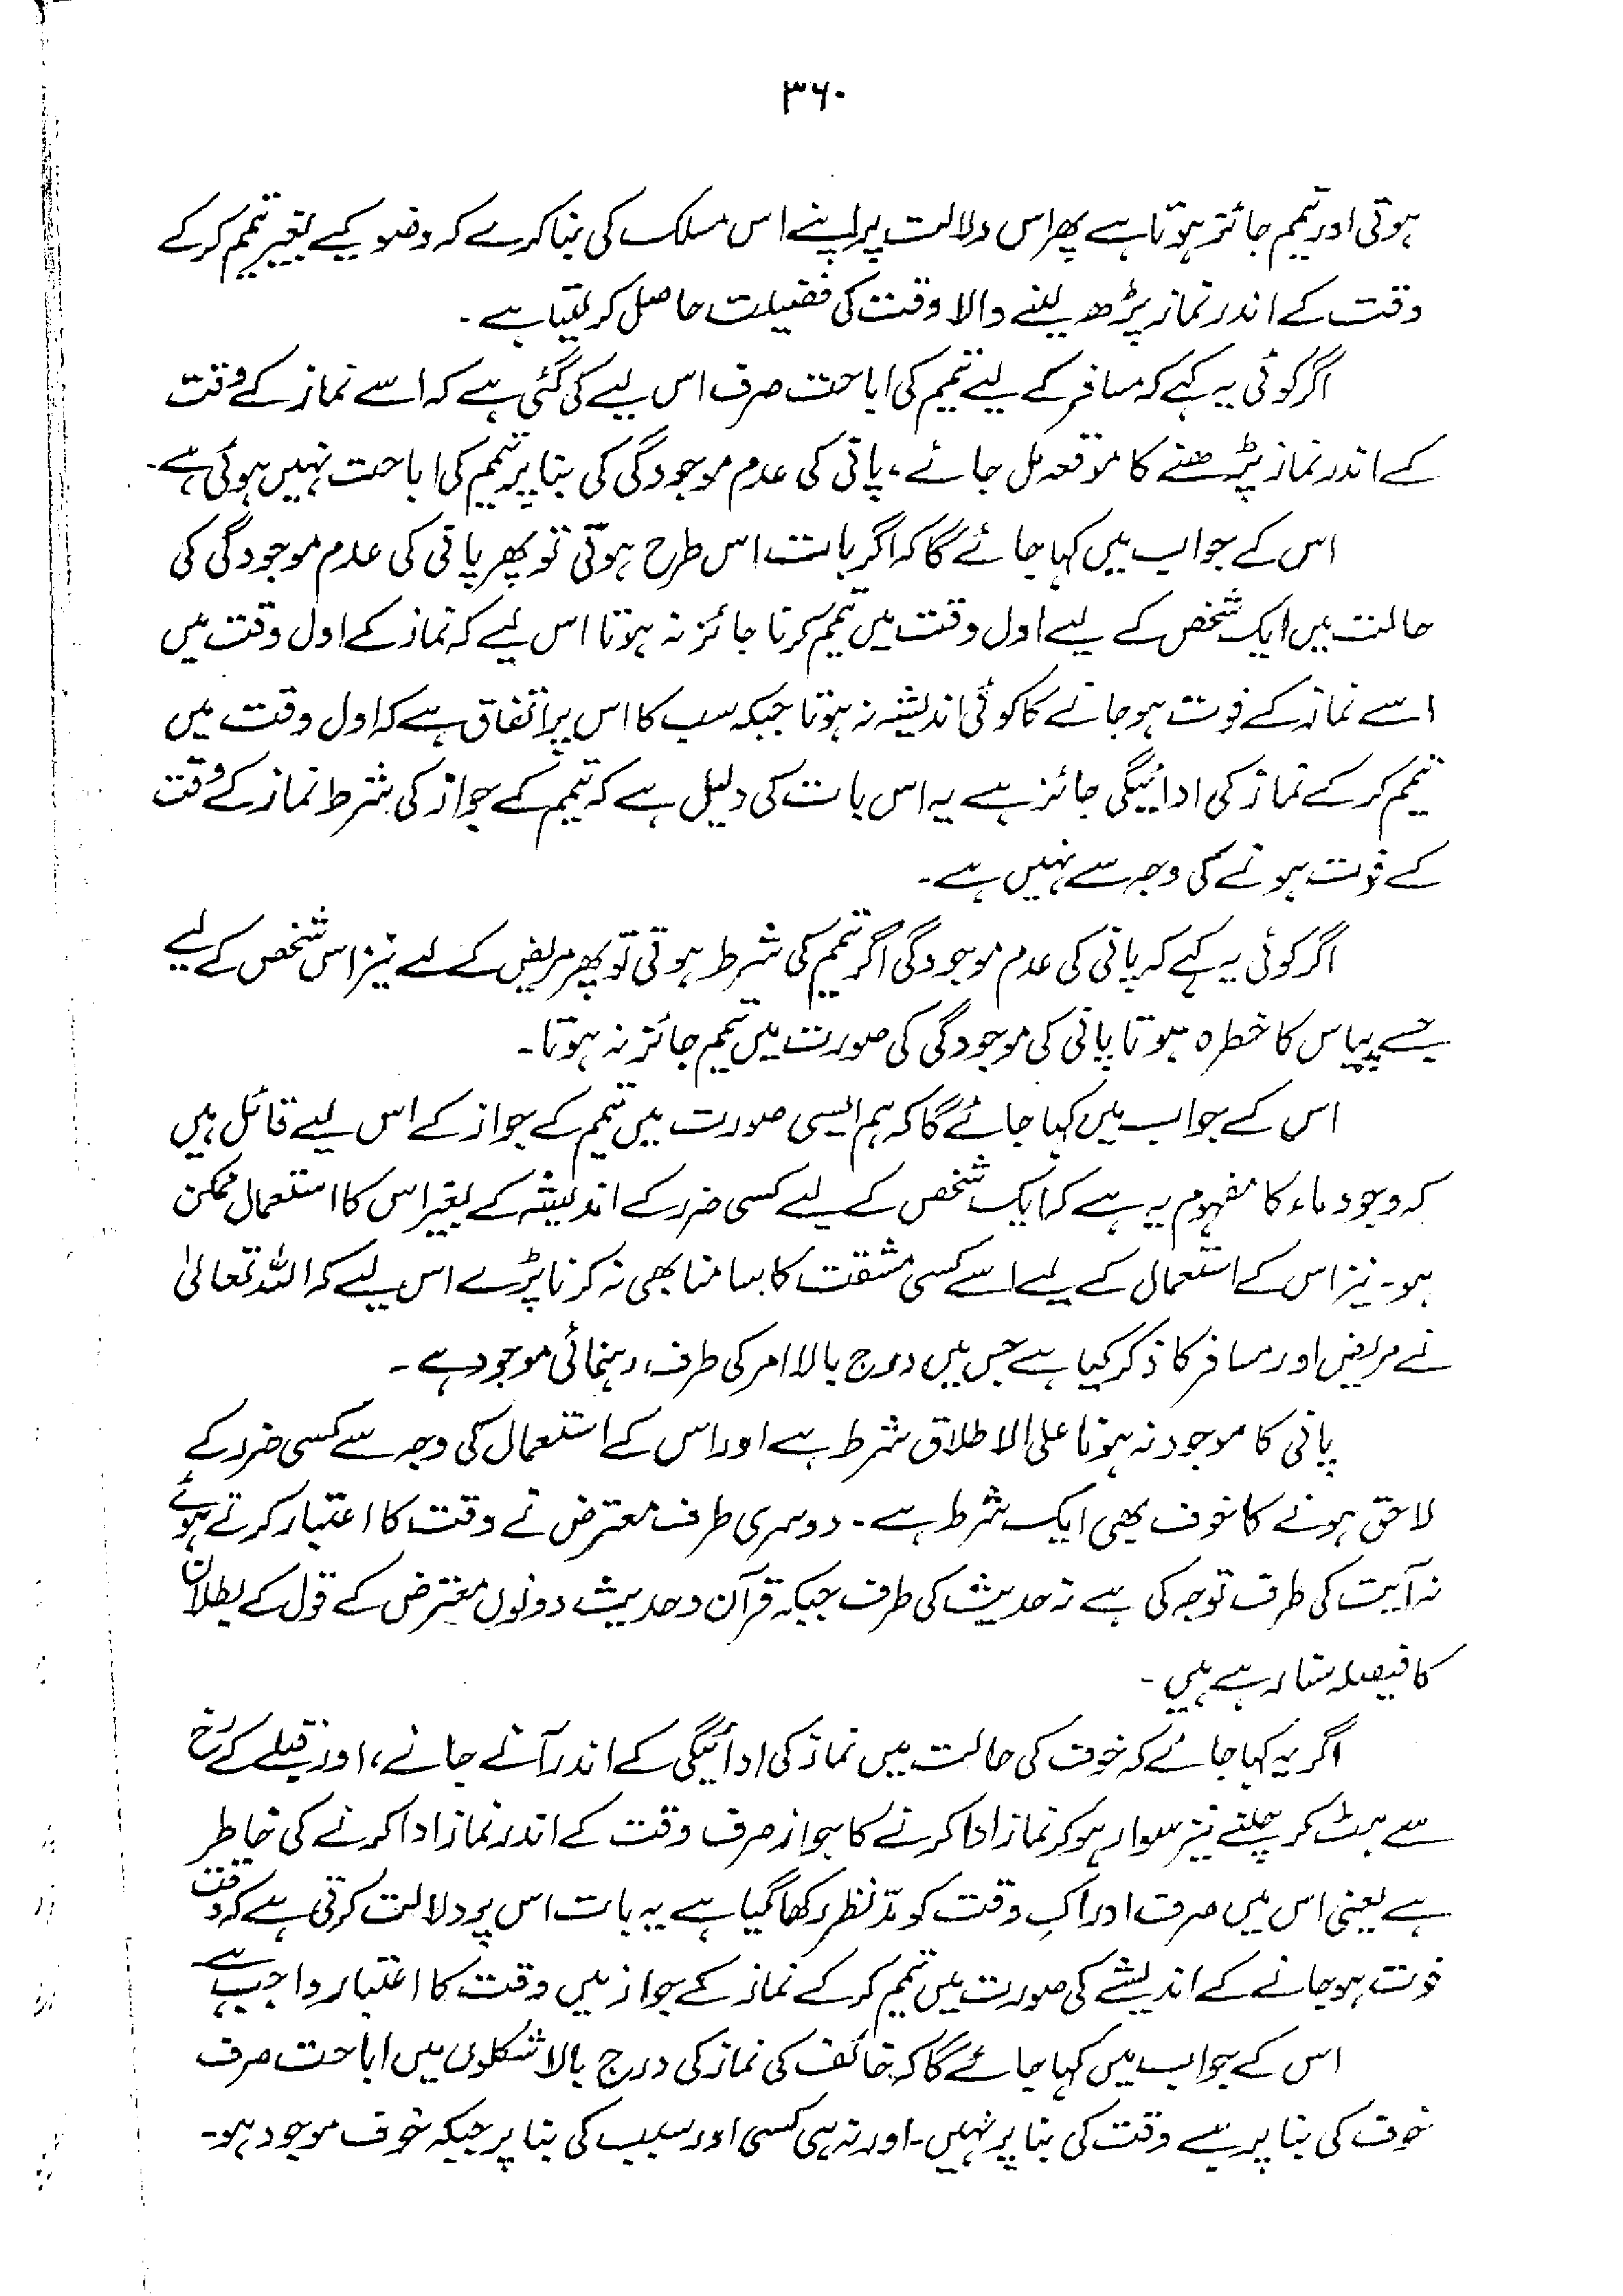 ۳۶۰
ہوتی اور تیمم جائز ہوتا ہے پھر اس دلالت پر اپنے اس مسلک کی بنا کرے کہ وضو کیے بغیر تیمم کر کے
وقت کے اندر نماز پڑھ لینے والا وقت کی فضیلت حاصل کر لیتا ہے۔
اگر کوئی یہ کہے کہ مسافر کے لیے تیمم کی اباحت صرف اس لیے کی گئی ہے کہ اسے نماز کے وقت
کے اندر نماز پڑھنے کا موقعہ مل جائے، پانی کی عدم موجودگی کی بنا پر تیمم کی اباحت نہیں ہوئی ہے۔
اس کے جواب میں کہا جائے گا کہ اگر بات اس طرح ہوتی تو پھر پانی کی عدم موجودگی کی
حالت میں ایک شخص کے لیے اول وقت میں تیمم کرنا جائز نہ ہوتا اس لیے کہ نماز کے اول وقت میں
اسے نماز کے فوت ہو جانے کا کوئی اندیشہ نہ ہوتا جبکہ سب کا اس پر اتفاق ہے کہ اول وقت میں
تیمم کر کے نماز کی ادائیگی جائز ہے یہ اس بات کی دلیل ہے کہ تیمم کے جواز کی شرط نماز کے وقت
کے فوت ہونے کی وجہ سے نہیں ہے۔
اگر کوئی یہ کہے کہ پانی کی عدم موجودگی اگر تیمم کی شرط ہوتی تو پھر مریض کے لیے نیز اس شخص کے لیے
جسے پیاس کا خطرہ ہوتا پانی کی موجودگی کی صورت میں تیمم جائز نہ ہوتا۔
اس کے جواب میں کہا جائے گا کہ ہم ایسی صورت میں تیمم کے جواز کے اس لیے قائل ہیں
کہ وجود ماء کا مفہوم یہ ہے کہ ایک شخص کے لیے کسی ضرر کے اندیشہ کے بغیر اس کا استعمال ممکن
ہو۔ نیز اس کے استعمال کے لیے اسے کسی مشقت کا سامنا بھی نہ کرنا پڑے اس لیے کہ اللہ تعالیٰ
نے مریض اور مسافر کا ذکر کیا ہے جس میں درج بالا امر کی طرف رہنمائی موجود ہے۔
پانی کا موجود نہ ہونا علی الاطلاق شرط ہے اور اس کے استعمال کی وجہ سے کسی ضرر کے
لاحق ہونے کا خوف بھی ایک شرط ہے۔ دوسری طرف معترض نے وقت کا اعتبار کرتے ہوئے
نہ آیت کی طرف توجہ کی ہے نہ حدیث کی طرف جبکہ قرآن و حدیث دونوں معترض کے قول کے بطلان
کا فیصلہ سنا رہے ہیں۔
اگر یہ کہا جائے کہ خوف کی حالت میں نماز کی ادائیگی کے اندر آنے جانے، اور قبلے کے رخ
سے ہٹ کر چلتے نیز سوار ہو کر نماز ادا کرنے کا جواز صرف وقت کے اندر نماز ادا کرنے کی خاطر
ہے یعنی اس میں صرف ادراکِ وقت کو مدّنظر رکھا گیا ہے یہ بات اس پر دلالت کرتی ہے کہ وقت
فوت ہو جانے کے اندیشے کی صورت میں تیمم کر کے نماز کے جواز میں وقت کا اعتبار واجب ہے
اس کے جواب میں کہا جائے گا کہ خائف کی نماز کی درج بالا شکلوں میں اباحت صرف
خوف کی بنا پر ہے وقت کی بنا پر نہیں۔ اور نہ ہی کسی اور سبب کی بنا پر جبکہ خوف موجود ہو۔